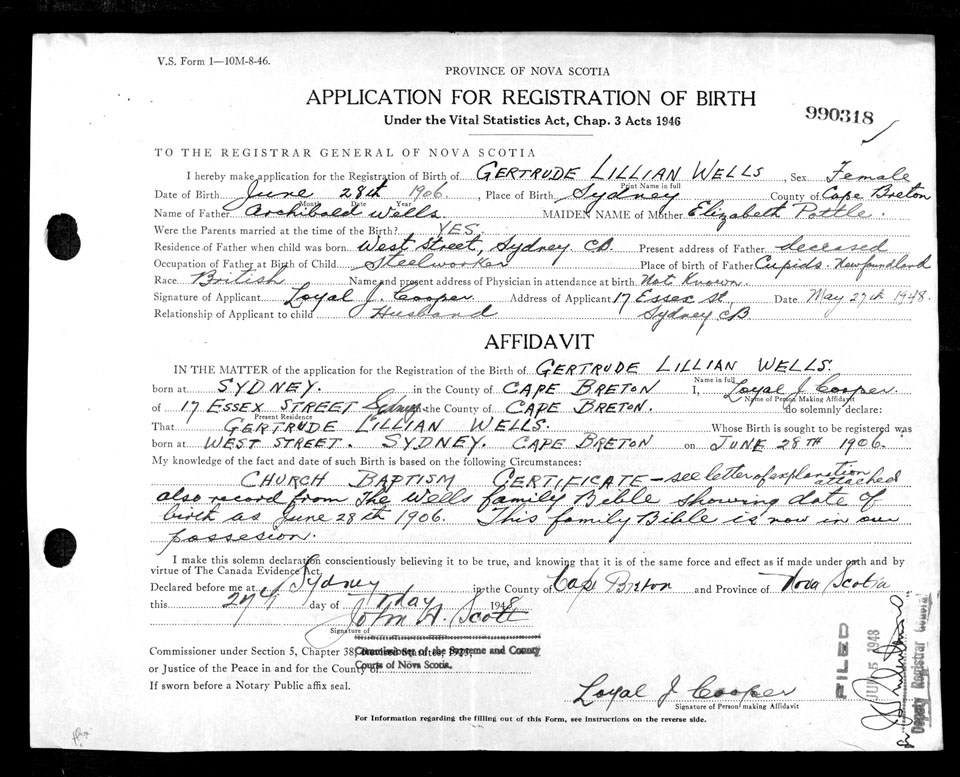 V.S. Form 1—10M-8-46.
PROVINCE OF NOVA SCOTIA
APPLICATION FOR REGISTRATION OF BIRTH
Under the Vital Statistics Act, Chap. 3 Acts 1946
990318
TO THE REGISTRAR GENERAL OF NOVA SCOTIA
I hereby make application for the Registration of Birth of GERTRUDE LILLIAN WELLS, Sex Female
Print Name in full
Date of Birth June 28th 1906. Place of Birth Sydney County of Cape Breton
Month Date Year
Name of Father Archibald Wells. MAIDEN NAME of Mother Elizabeth Pottle.
Were the Parents married at the time of the Birth? YES.
Residence of Father when child was born West Street, Sydney CB. Present address of Father deceased
Occupation of Father at Birth of Child Steelworker Place of birth of Father Cupids. Newfoundland
Race British Name and present address of Physician in attendance at birth Not Known.
Signature of Applicant Loyal J. Cooper Address of Applicant 17 Essex St. Date May 27th 1948.
Relationship of Applicant to child Husband Sydney CB
AFFIDAVIT
IN THE MATTER of the application for the Registration of the Birth of GERTRUDE LILLIAN WELLS.
Name in full
born at SYDNEY. in the County of CAPE BRETON I, Loyal J. Cooper.
Name of Person Making Affidavit
of 17 ESSEX STREET Sydney in the County of CAPE BRETON. do solemnly declare:
Present Residence
That GERTRUDE LILLIAN WELLS. Whose Birth is sought to be registered was
born at WEST STREET. SYDNEY. CAPE BRETON on JUNE 28TH 1906.
My knowledge of the fact and date of such Birth is based on the following Circumstances:
CHURCH BAPTISM CERTIFICATE — see letter of explanation attached
also record from The Wells family Bible showing date of
birth as June 28th 1906. This family Bible is now in our
possesion.
I make this solemn declaration conscientiously believing it to be true, and knowing that it is of the same force and effect as if made under oath and by
virtue of The Canada Evidence Act,
Declared before me at Sydney in the County of Cape Breton and Province of Nova Scotia
this 27th day of May 1948
John A. Scott
Signature of
Commissioner under Section 5, Chapter 38, Revised Statutes, 1923,
Commissioner of the Supreme and County
or Justice of the Peace in and for the County of
Courts of Nova Scotia.
If sworn before a Notary Public affix seal.
Loyal J Cooper
Signature of Person making Affidavit
For Information regarding the filling out of this Form, see instructions on the reverse side.
FILED
5 1948
Deputy Registrar General